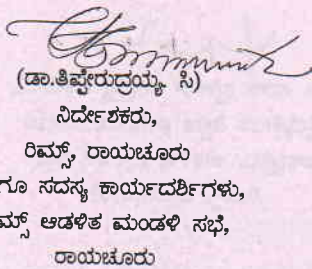 (ಡಾ.ತಿಪ್ಪೇರುದ್ರಯ್ಯ. ಸಿ)
ನಿರ್ದೇಶಕರು,
ರಿಮ್ಸ್, ರಾಯಚೂರು
ಗೂ ಸದಸ್ಯ ಕಾರ್ಯದರ್ಶಿಗಳು,
ಮ್ಸ್ ಆಡಳಿತ ಮಂಡಳಿ ಸಭೆ,
ರಾಯಚೂರು